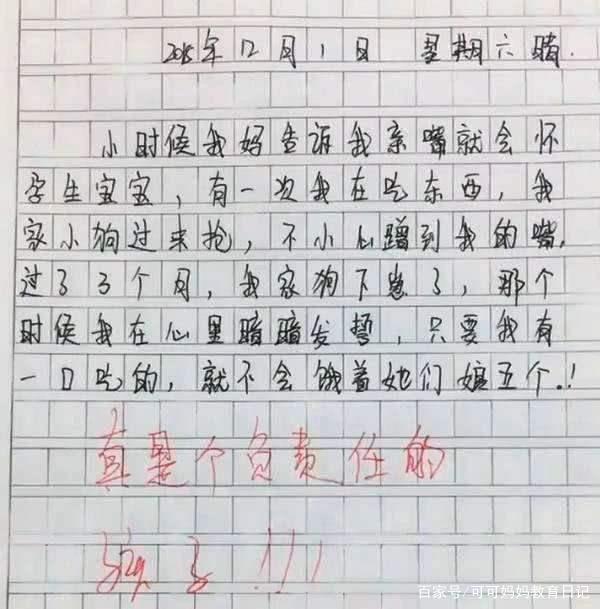 2018年12月1日 星期六 晴.
小时候我妈告诉我亲嘴就会怀
孕生宝宝，有一次我在吃东西，我
家小狗过来抢，不小心蹭到我的嘴，
过了3个月，我家狗下崽了，那个
时候我在心里暗暗发誓，只要我有
一口吃的，就不会饿着她们娘五个.！
真是个负责任的
孩子!!!
百家号/可可妈妈教育日记